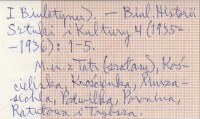 I Biuletynu). – Biul. Historii
Sztuki i Kultury 4 (1935–
–1936): 1–5.
M. in. z Tatr (szałasy), Koś-
cieliska, Krościenka, Murza-
sichla, Poronina,
Ratułowa i Trybsza.